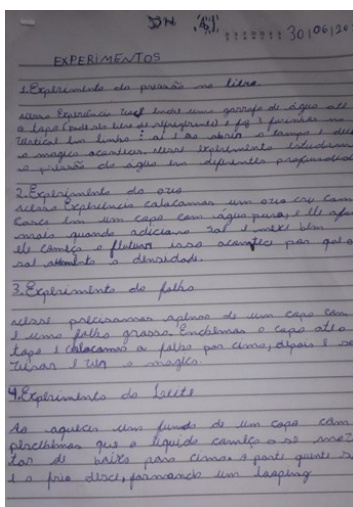 30/06/20
EXPERIMENTOS
1. Experimento da pressão no litro.
Nessa Experiência você enche uma garrafa de água até
a tapa (pode ser litro de refrigerante) e faz 3 furinhos na
Vertical em linha : aí é ao abrir a tampa e dei
a magica acontecer. esse experimento estudam
a pressão da água em diferentes profundida
2. Experimento do ovo
Nessa Experiência colocamos um ovo cru com
casca em um copo com água pura, e ele afun
mais quando adiciona sal e mexe bem
ele começa a flutuar isso acontece por que o
sal aumenta a densidade.
3. Experimento da folha
Nesse precisamos apenas de um copo com
e uma folha grossa. Enchemos o copo até a
tapa e colocamos a folha por cima, depois é só
virar e ver a magica.
4. Experimento do Leite
Ao aquecer um fundo de um copo com
percebemos que o líquido começa a se movi
tar de baixo para cima. a parte quente s
e a fria desce, formando um looping